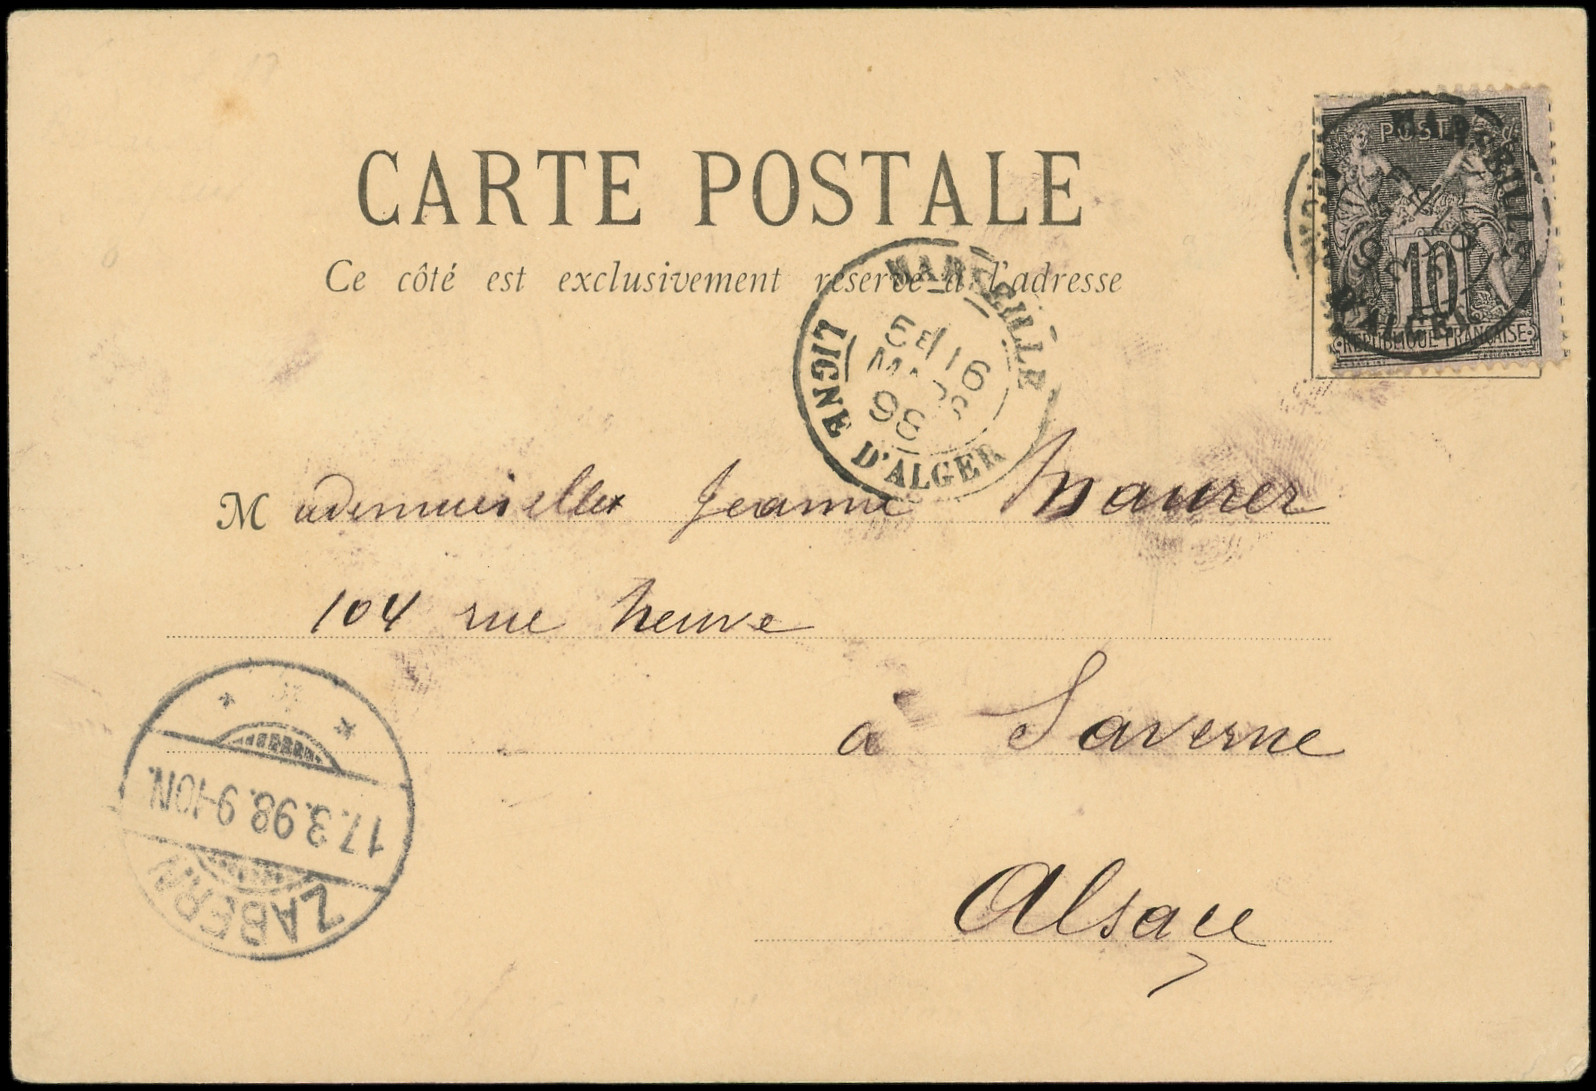 CARTE POSTALE
Ce côté est exclusivement réservé à l'adresse
POSTES
10
REPUBLIQUE FRANÇAISE
MARSEILLE
D'ALGER
MARSEILLE
5E 16
MARS
98
LIGNE D'ALGER
Mademoiselle Jeanne Maurer
104 rue neuve
à Saverne
Alsace
17.3.98.9-10N.
ZABERN